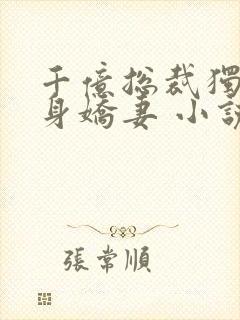 千億總裁獨
身嬌妻 小說
張常順